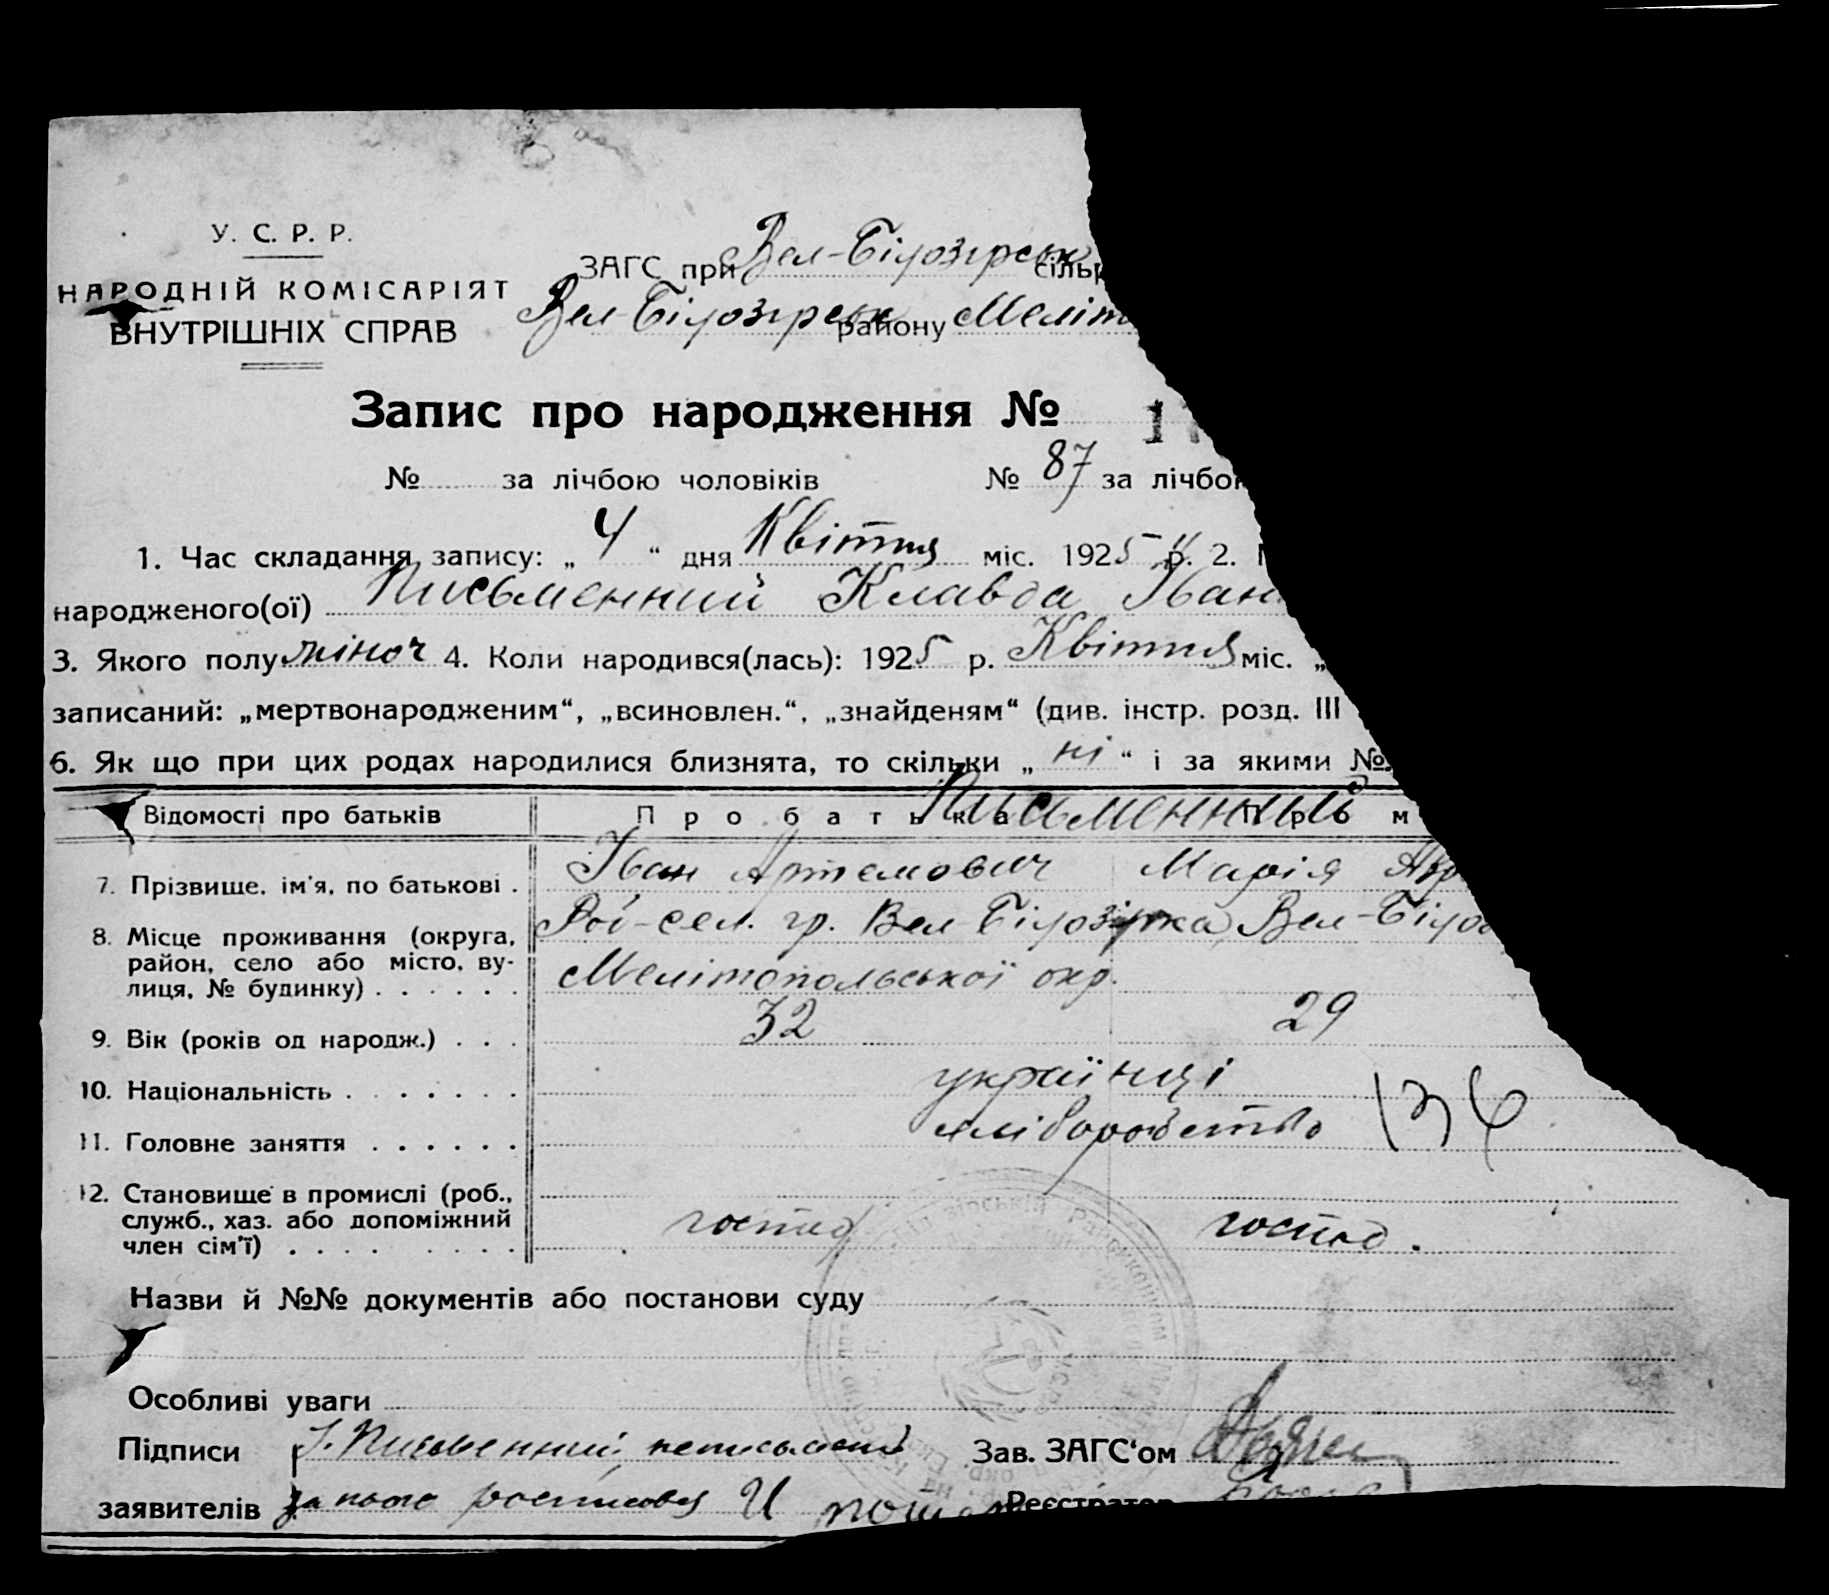 У. С. Р. Р.
НАРОДНІЙ КОМІСАРІЯТ
ВНУТРІШНІХ СПРАВ
ЗАГС при Вел-Білозірськ сіль
Вел-Білозірськ району Меліт
Запис про народження № 1
№ за лічбою чоловіків № 87 за лічбо
1. Час складання запису: „ 4 “ дня Квітня міс. 1925 р. 2.
народженого(ої) Письменний Клавда Іван
3. Якого полу жіноч 4. Коли народився(лась): 1925 р. Квітня міс. „
записаний: „мертвонародженим“, „всиновлен.“, „знайденям“ (див. інстр. розд. III
6. Як що при цих родах народилися близнята, то скільки „ ні “ і за якими №
Відомості про батьків Про батька Письменний Про м
7. Прізвище, ім'я, по батькові . Іван Артемович Марія
8. Місце проживання (округа, район, село або місто, вулиця, № будинку) . . . . . .
сел. гр. Вел-Білозірка, Вел-Біло
Мелітопольської окр.
9. Вік (років од народж.) . . . 32 29
10. Національність . . . . . . . українці
11. Головне заняття . . . . . . хліборобство 136
12. Становище в промислі (роб., служб., хаз. або допоміжний член сім'ї) . . . . . . . . . господ господ.
Назви й №№ документів або постанови суду
Особливі уваги
Підписи І. Письменний неписьмен Зав. ЗАГС‘ом
заявителів за його росписався И Реєстратор